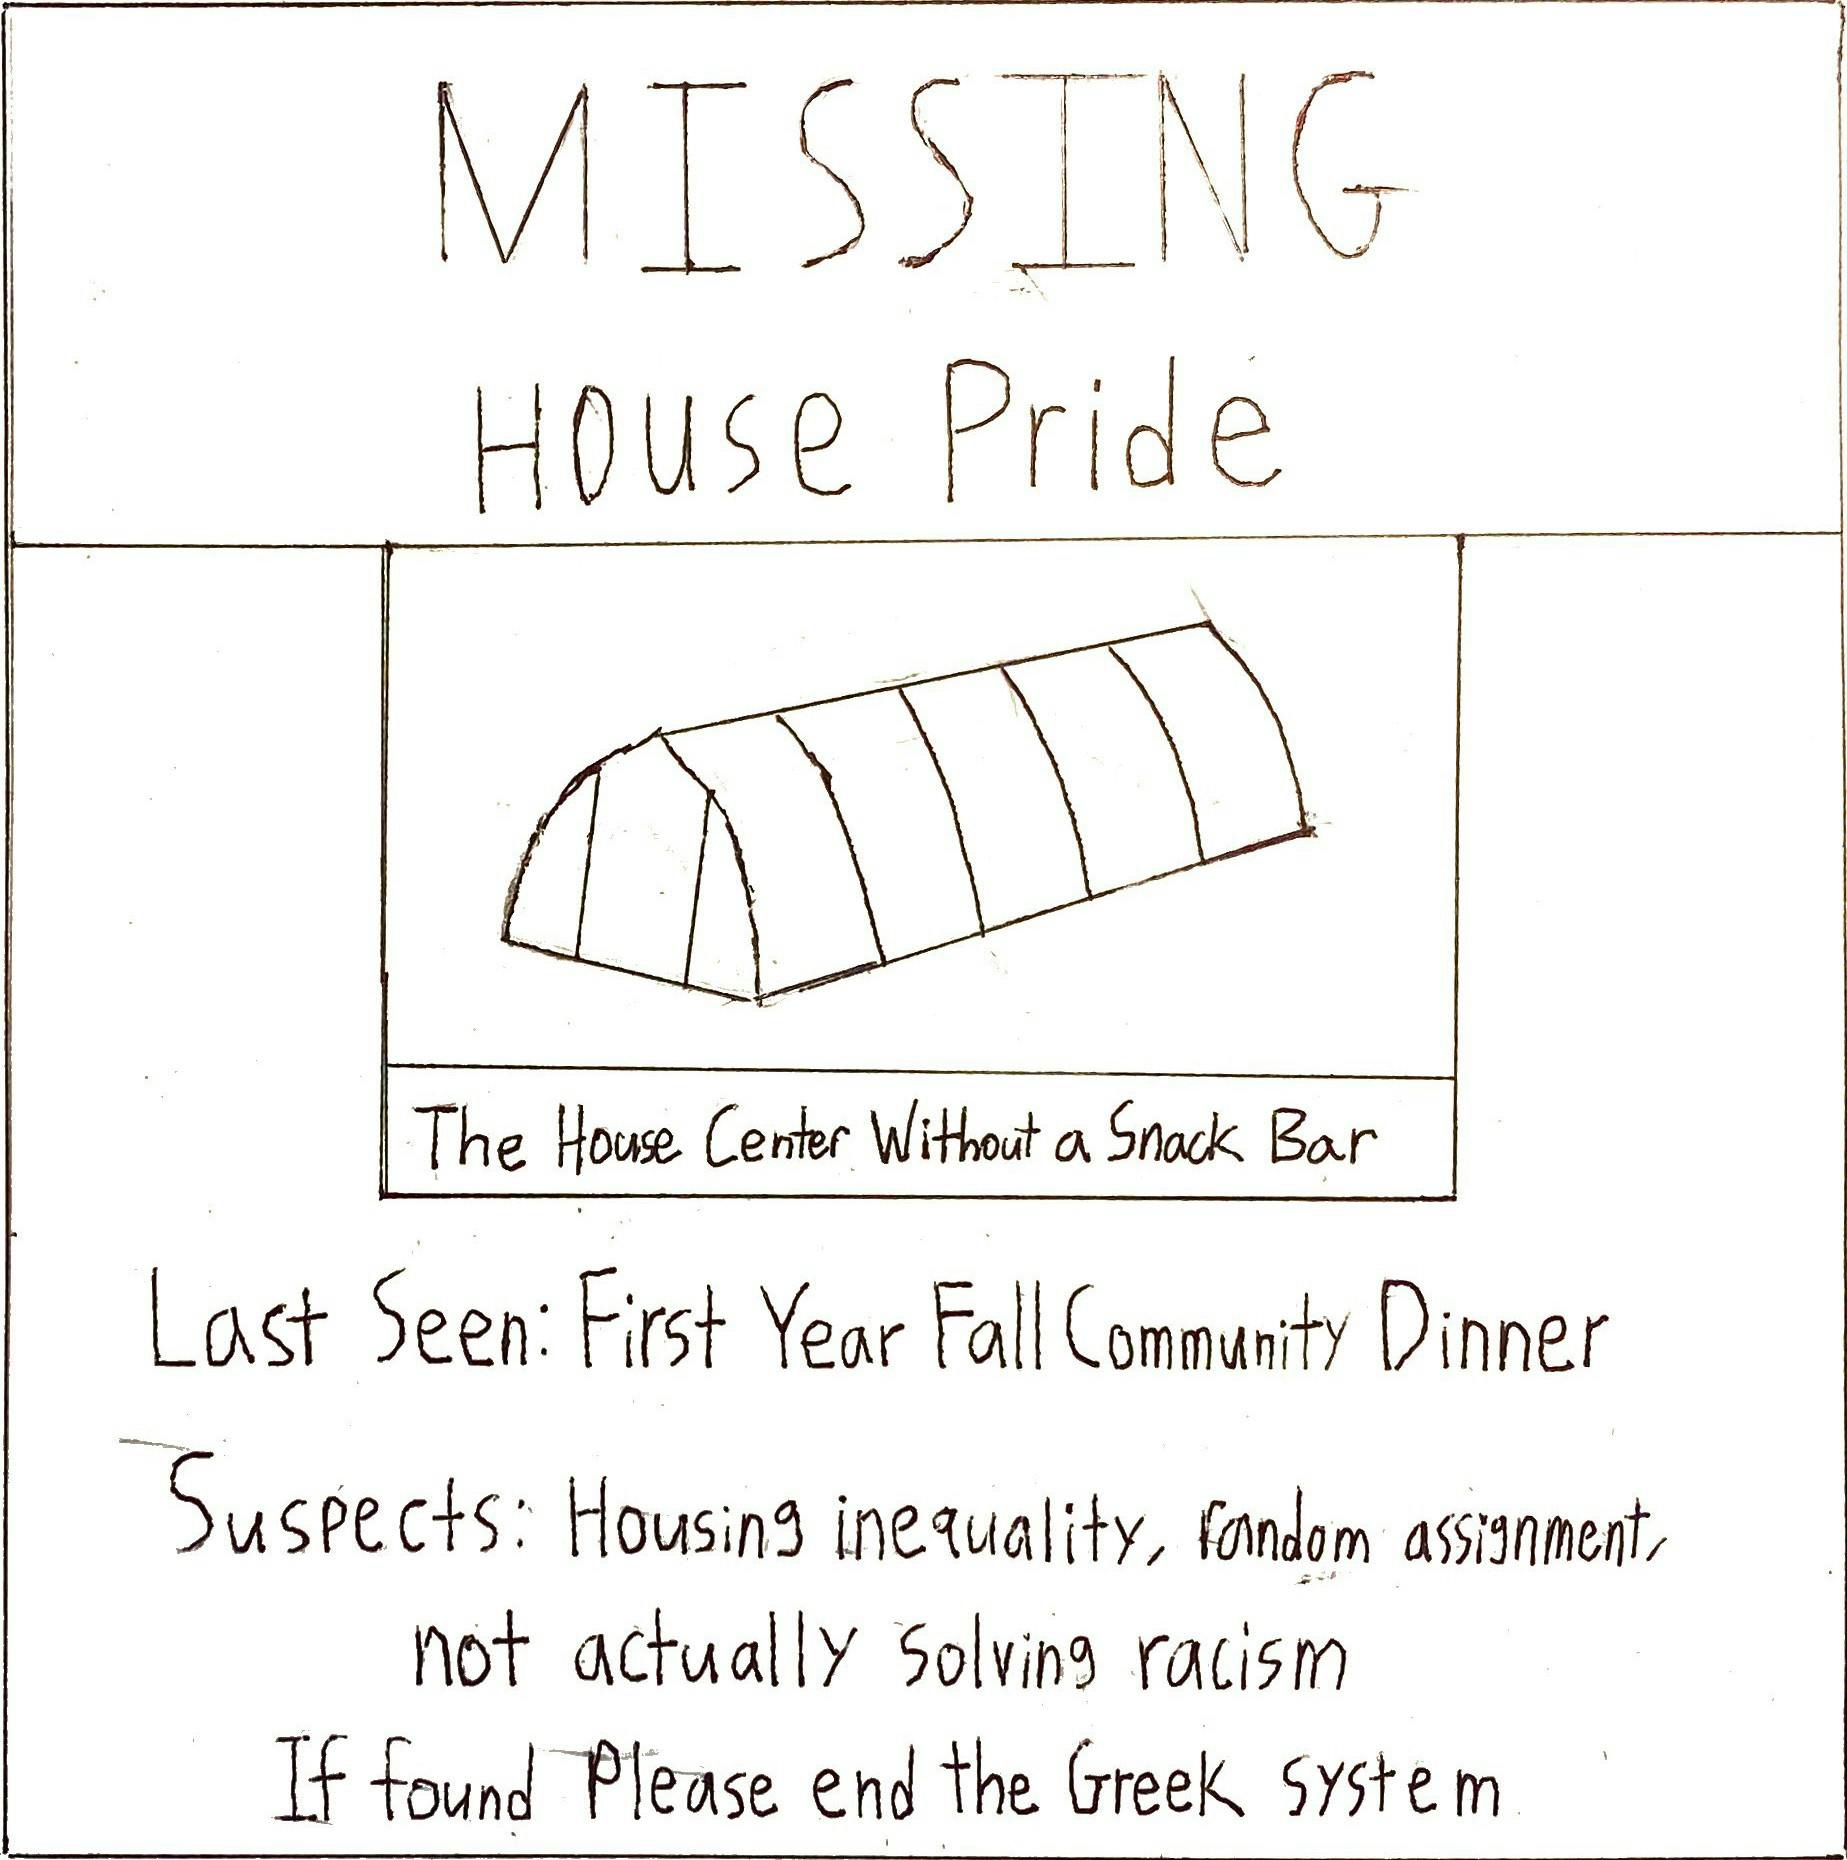 MISSING
House Pride
The House Center Without a Snack Bar
Last Seen: First Year Fall Community Dinner
Suspects: Housing inequality, random assignment,
not actually solving racism
If found Please end the Greek system